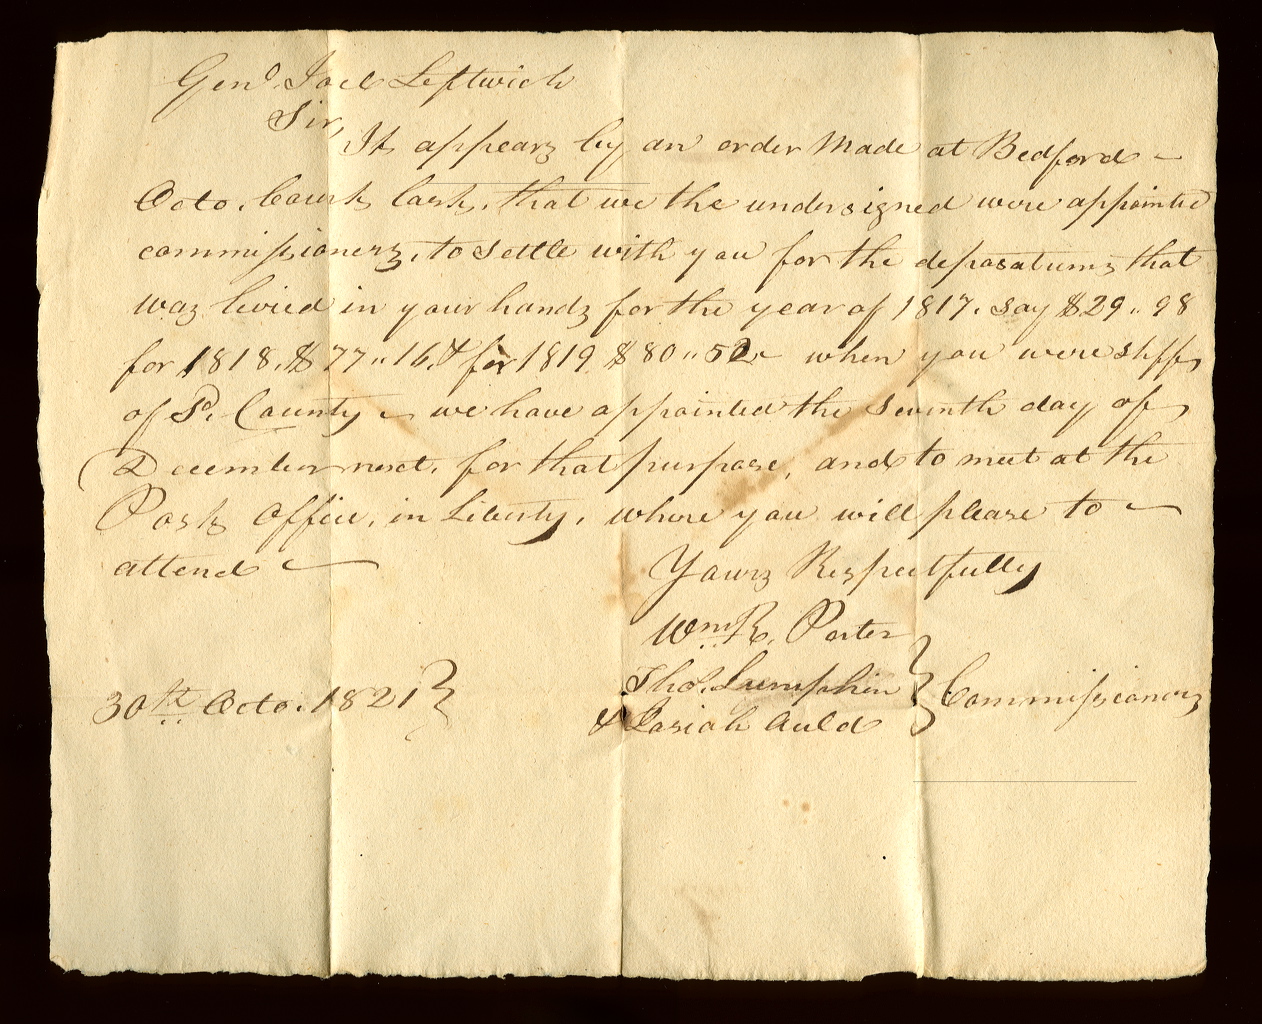 Genl. Joel Leftwich
Sir,
It appears by an order made at Bedford –
Octo. Court last, that we the undersigned were appointed
commissioners, to settle with you for the deposatums that
was levied in your hands for the year of 1817. say $29..98
for 1818. $77..16. & for 1819 $80..52 – when you were shff
of Sd. County – we have appointed the seventh day of
December next, for that purpose, and to meet at the
Post Office, in Liberty, where you will please to –
attend –
Yours Respectfully
Wm. R. Porter
Thos. Lumpkin
& Josiah Auld
} Commissioners
30th Octo. 1821 }